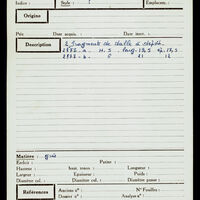 Indice : Style : ? Emplacem. :
Origine
Prix Date acquis. : Date inscr. :
Description 2 fragments de dalle à dépôt
2872. a. H. 5 Larg. 13,5 ép. 13,5
2872. b. 21 12
Matière : grès
Entier : Pointe :
Hauteur : haut. tenon : Longueur :
Largeur : Epaisseur : Poids :
Diamètre col : Diamètre panse :
Références Anciens nos : No Fouilles :
Dossier no : Analyse no :